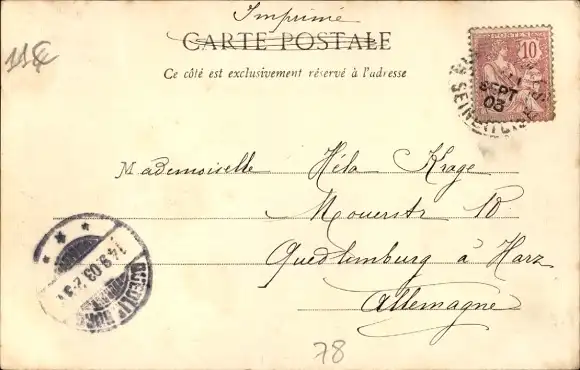 Imprimé
CARTE POSTALE
Ce côté est exclusivement réservé à l'adresse
11€
POSTES
10
SEPT
03
SEINE
Mademoiselle Héla Krage
Mouerstr 10
Quedlemburg à Harz
Allemagne
14.9.03
QUEDLINBURG
78